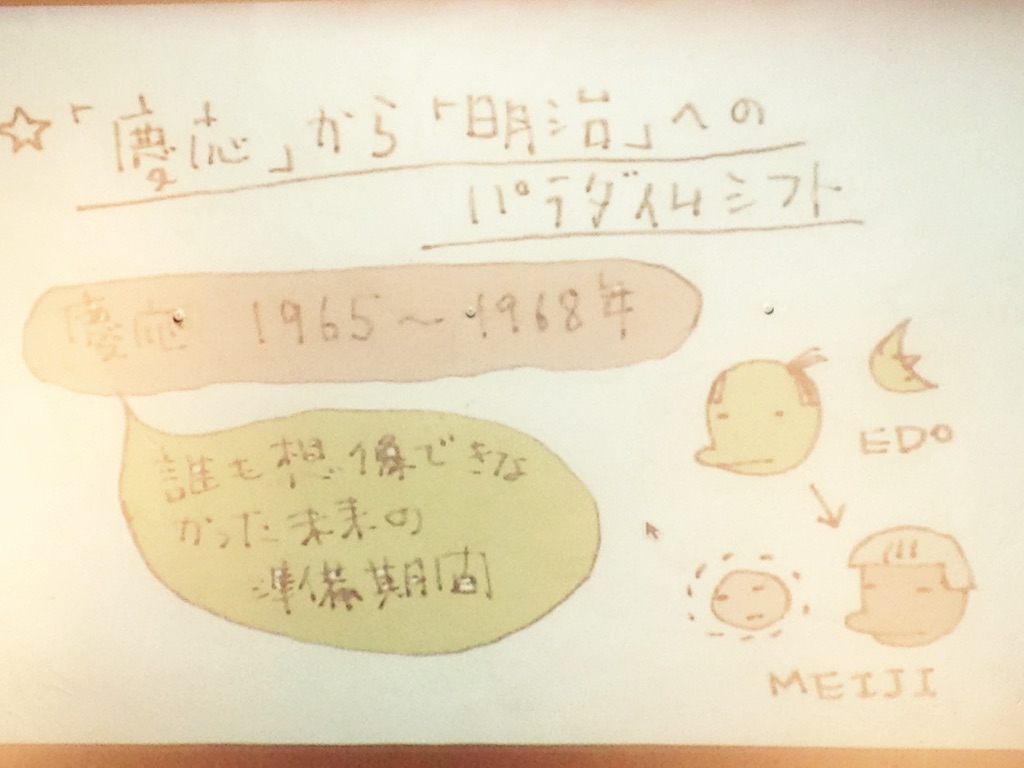 ☆「慶応」から「明治」への
パラダイムシフト
慶応 1965～1968年
誰も想像できな
かった未来の
準備期間
EDO
MEIJI